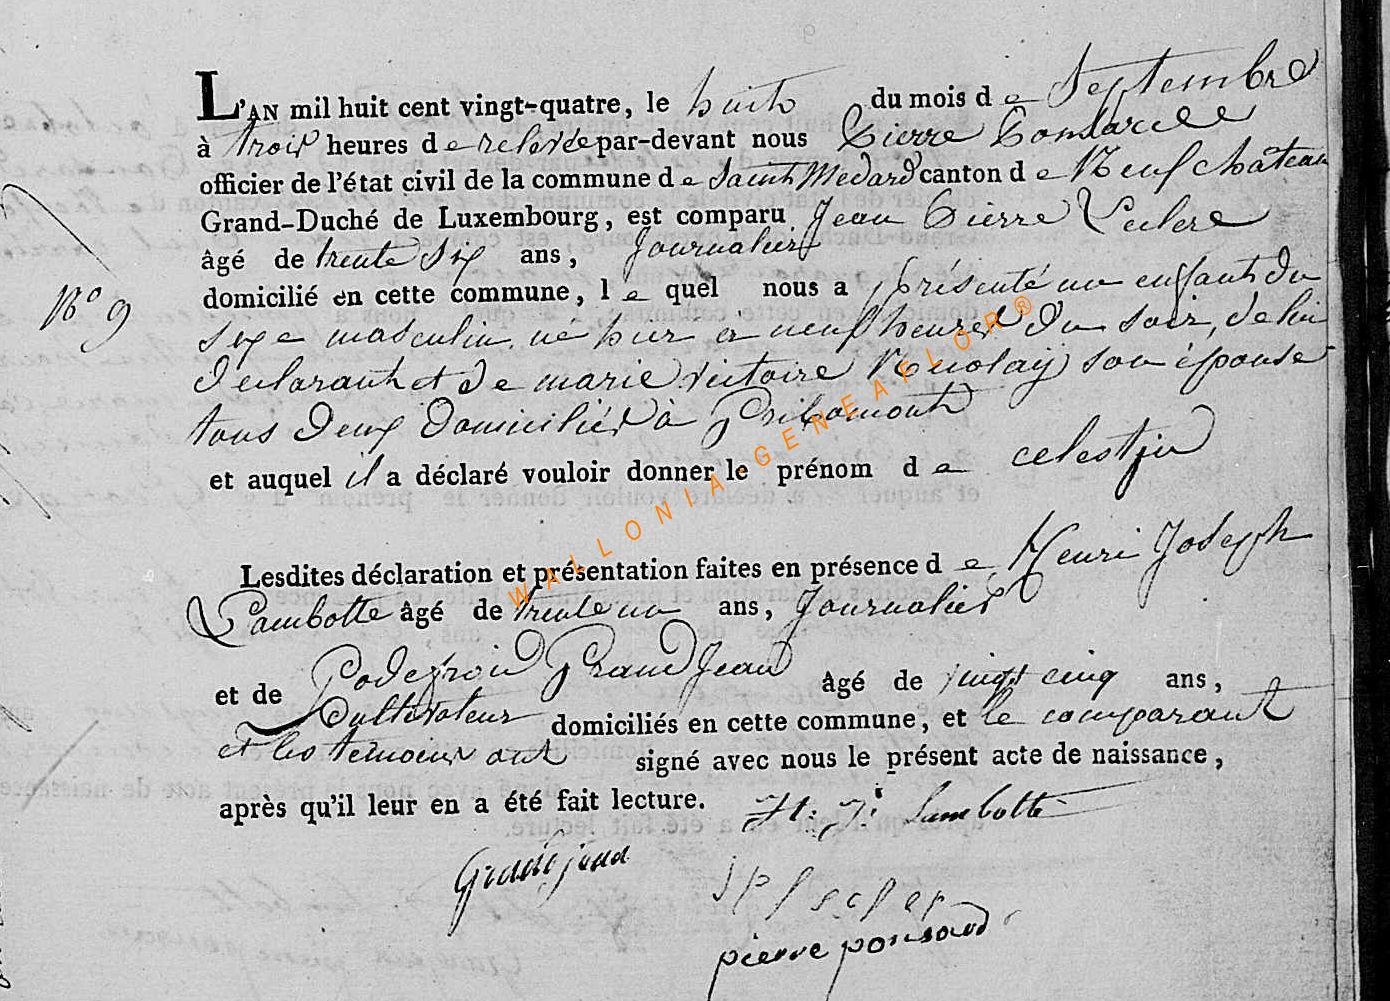 L'AN mil huit cent vingt-quatre, le huit du mois de Septembre
à trois heures de relevée par-devant nous Pierre
officier de l'état civil de la commune de Saint Medard canton de Neufchâteau
Grand-Duché de Luxembourg, est comparu Jean Pierre Leclere
âgé de trente Six ans, Journalier
N° 9
domicilié en cette commune, lequel nous a présenté un enfant du
sexe masculin né hier à neuf heures du soir, de lui
declarant et de marie victoire Nicolay son épouse
tous deux domiciliés à Gribomont
et auquel il a déclaré vouloir donner le prénom de celestin
Lesdites déclaration et présentation faites en présence de Henri Joseph
Lambotte âgé de trente un ans, Journalier
et de Godefroid GrandJean âgé de vingt cinq ans,
Cultivateur domiciliés en cette commune, et le comparant
et les temoins ont signé avec nous le présent acte de naissance,
après qu'il leur en a été fait lecture. H. J. Lambotte
Grandjean
JP
pierre ponsard
WALLONIA-GENEAFLOR®